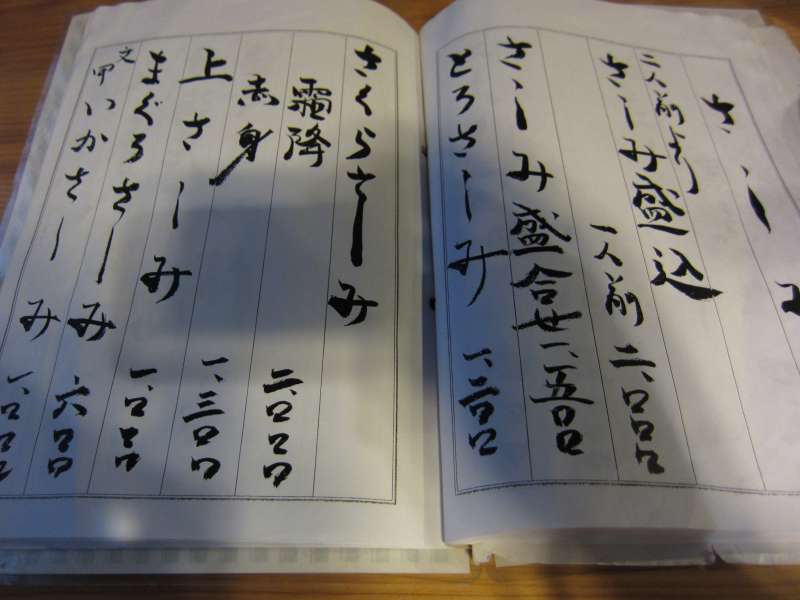 さしみ
二人前より
さしみ盛込
一人前 二、〇〇〇
さしみ盛合せ 一、五〇〇
とろさしみ 一、三〇〇
さくらさしみ
霜降 二、〇〇〇
赤身 一、三〇〇
上さしみ 一、〇〇〇
まぐろさしみ 六〇〇
文甲いかさしみ 一、〇〇〇